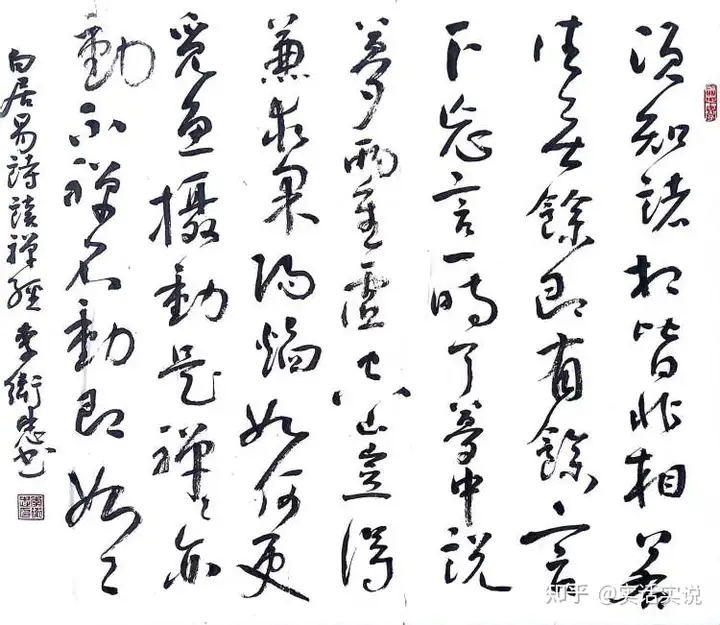 須知諸相皆非相若
住无餘即有餘言
下忘言一時了夢中説
夢兩重虛空花豈得
兼求果陽焰如何更
覓魚攝動是禪〻亦
動不禪不動即如〻
白居易詩讀禅經 李衛忠书
知乎 @实话实说